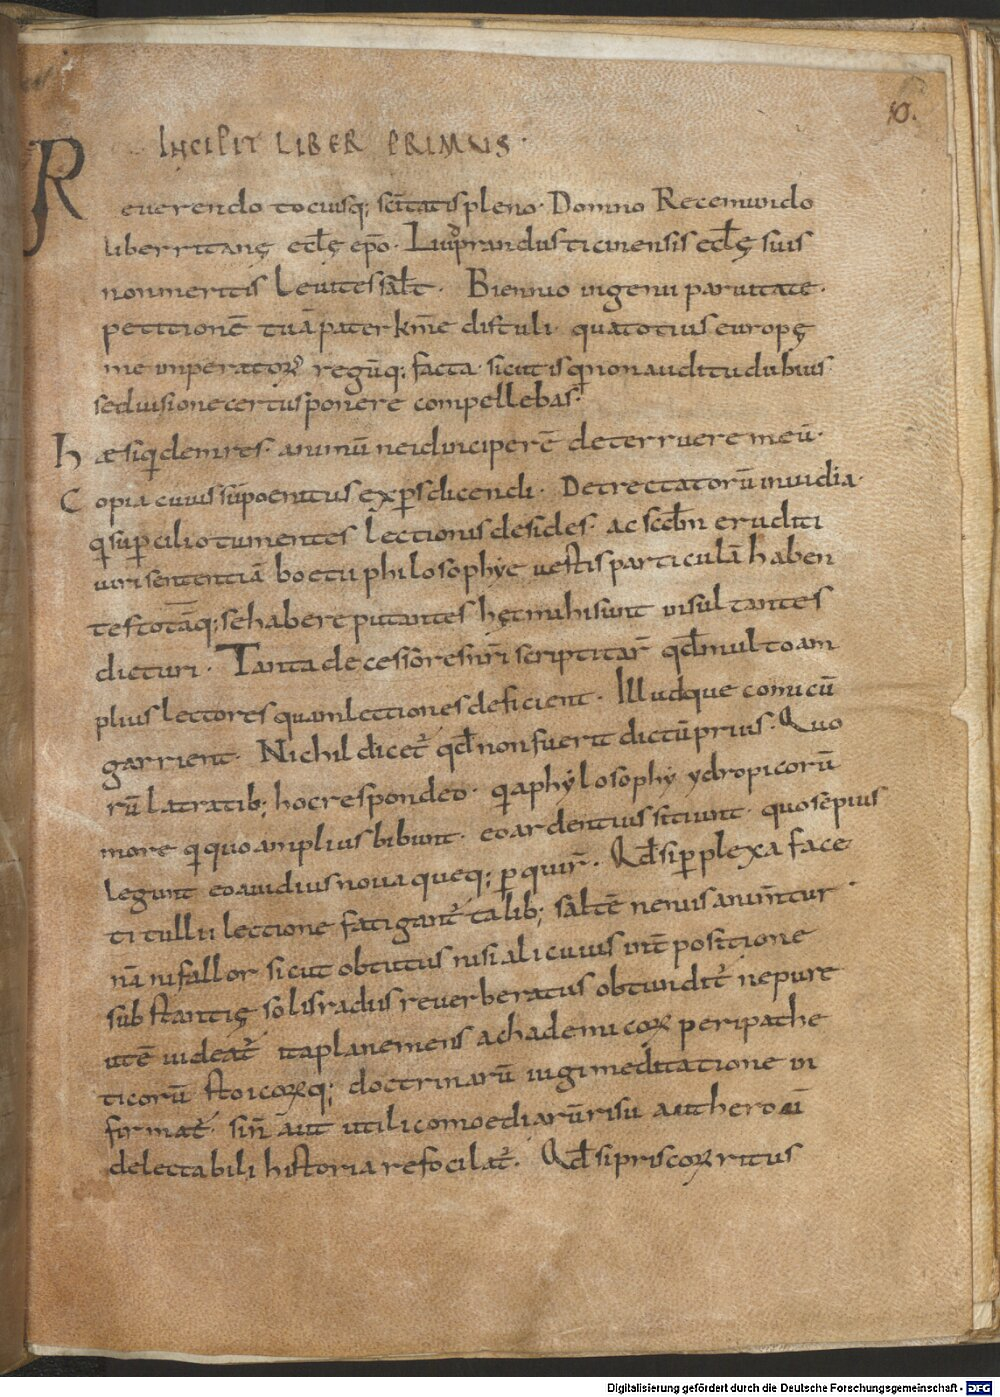 10.
INCIPIT LIBER PRIMUS·
Reuerendo tociusq; sc̄itatis pleno· Domno Recemundo
liberritanę eccl̄ę ep̄o· Liuꝓrandus ticinensis eccl̄ę suis
non meritis Leuites sal̄t· Biennio ingenii paruitate·
petitionē tuā pater km̄e distuli· qua totius europę
me imperatoꝝ regūq; facta· sicut is qi non auditu dubius
sed uisione certus ponere compellebas·
Hæ siqidem res· animū ne id inciperē deterruere meū·
Copia cuius sūpoenitus expers dicendi· Detrectatorū inuidia·
qi supcilio tumentes lectionis desides· ac scd̄m eruditi
uiri sententiā boetii philosophye uestis particulā haben
tes totāq; se habere putantes hęc mihi sunt insultantes
dicturi· Tanta decessores nr̄i scriptitar̄ qd̄ multo am
plius lectores quam lectiones deficient· Illudque comicū
garrient· Nichil dicet̄ qd̄ non fuerit dictū prius· Quo
rū latratib; hoc respondeo· qia phylosophy ydropicorū
more qi quo amplius bibunt· eo ardentius sitiunt· quo sepius
legunt eo auidius noua queq; pquir̄· Qd̄ si pplexa face
ti tullii lectione fatigant̄ talib; saltē neniis anim̄tur·
nā ni fallor sicut obtutus nisi alicuius int̄positione
substantię solis radiis reuerberatus obtundit̄ ne pure
utē uideat̄ ita plane mens achademicoꝝ peripathe
ticorū stoicoꝝq; doctrinarū iugi meditatione in
firmat̄· sin̄ aut utili comoediarū risu aut heroū
delectabili historia refocilat̄· Qd̄ si priscoꝝ ritus
Digitalisierung gefördert durch die Deutsche Forschungsgemeinschaft - DFG